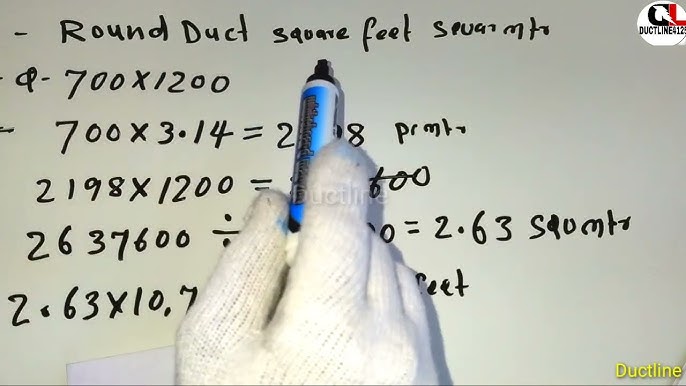 - Round Duct square feet squar mtr
- φ - 700×1200
- 700×3.14 = 2 8 prmtr
2198×1200 = 600
2637600 ÷ 00 = 2.63 squmtr
2.63×10.7 feet
QL
DUCTLINE4129
Ductline
Ductline